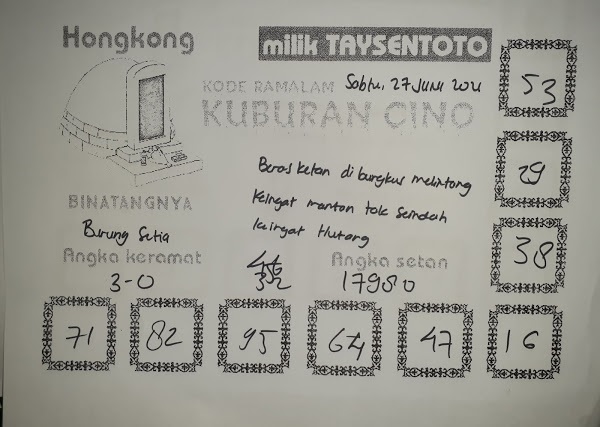 Hongkong
milik TAYSENTOTO
KODE RAMALAM
KUBURAN CINO
53
29
38
Beras ketan di bungkus melintang
Keringat mantan tak seindah
keringat Hutang
BINATANGNYA
Burung Setia
Angka keramat
3-0
Angka setan
17980
71
82
95
64
47
16